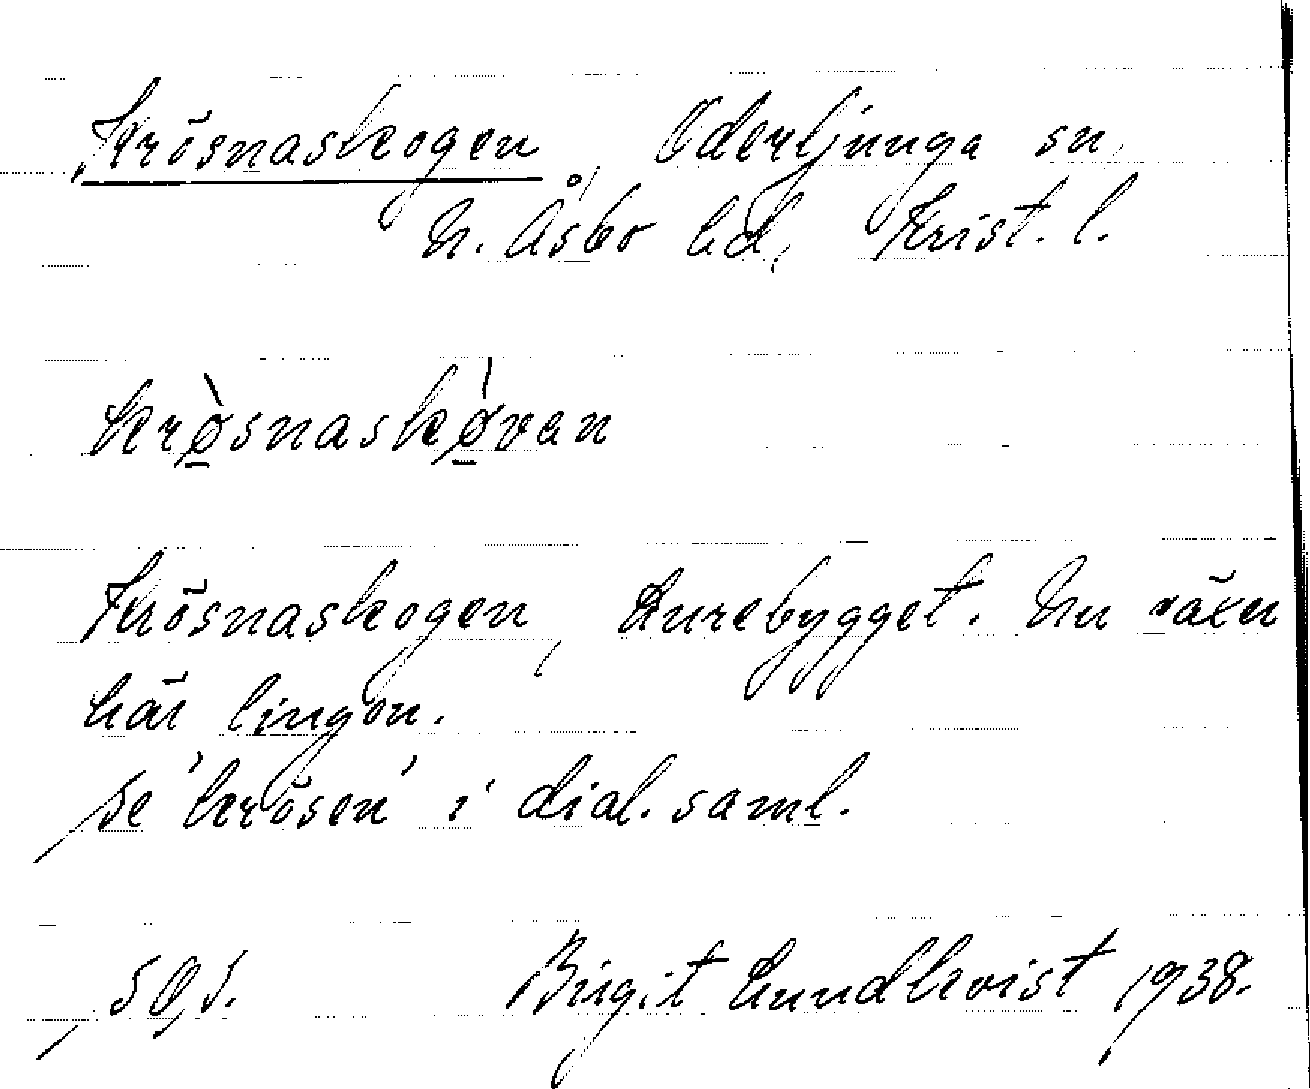 Krösnaskogen, Oderljunga sn,
N. Åsbo hd, Krist. l.
krø̱̀snaskø̱̀van
Krösnaskogen, Lurebygget. Nu växer
här lingon.
se 'krösen' i dial. saml.
Birgit Lundkvist 1938.